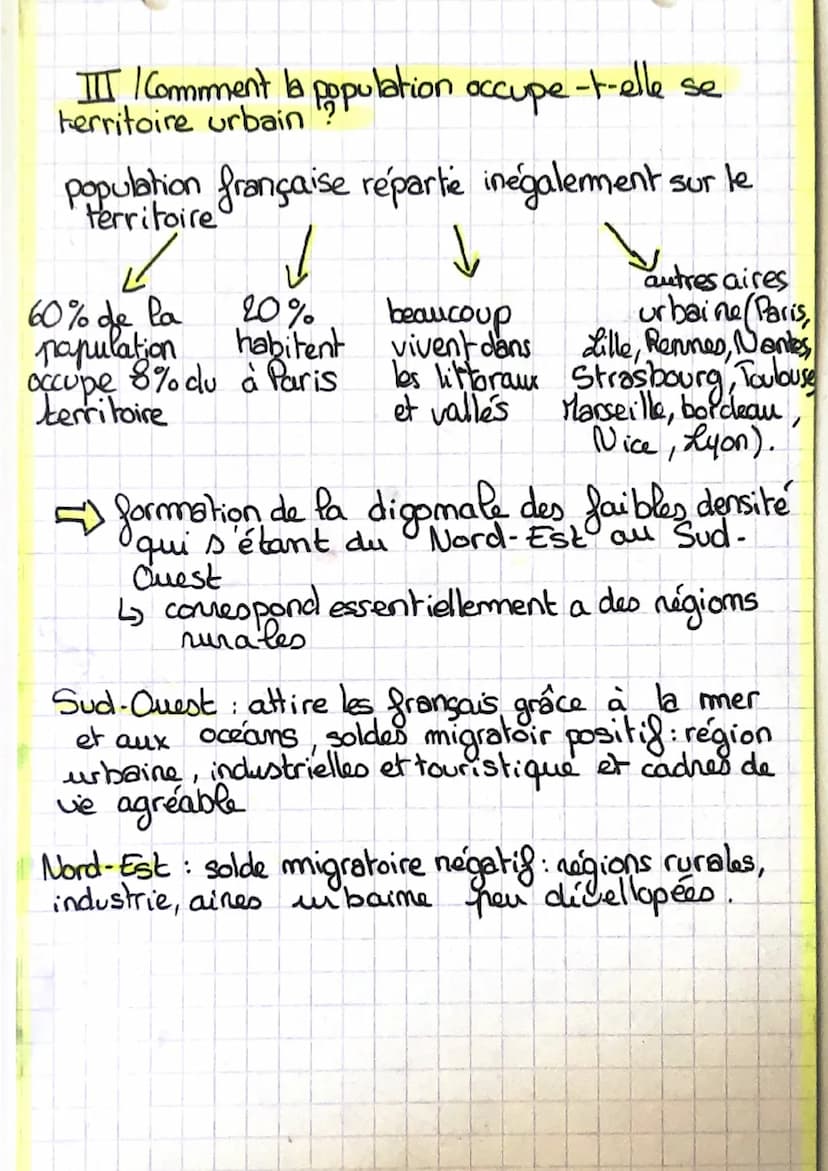 III / Commment la population occupe-t-elle se
territoire urbain ?
population française répartie inégalement sur le
territoire
60% de la
population
occupe 8% du
territoire
20%
habitent
à Paris
beaucoup
vivent dans
les littoraux
et vallés
autres aires
urbaine (Paris,
Lille, Rennes, Nantes,
Strasbourg, Toulouse
Marseille, bordeau,
Nice, Lyon).
⇒ formation de la digomale des faibles densité
qui s'étant du Nord-Est au Sud-
Ouest
↳ correspond essentiellement a des régions
rurales
Sud-Ouest : attire les français grâce à la mer
et aux océans, soldes migratoir positif : région
urbaine, industrielles et touristique et cadres de
vie agréable
Nord-Est : solde migratoire négatif : régions rurales,
industrie, aires urbaine peu dévellopées.